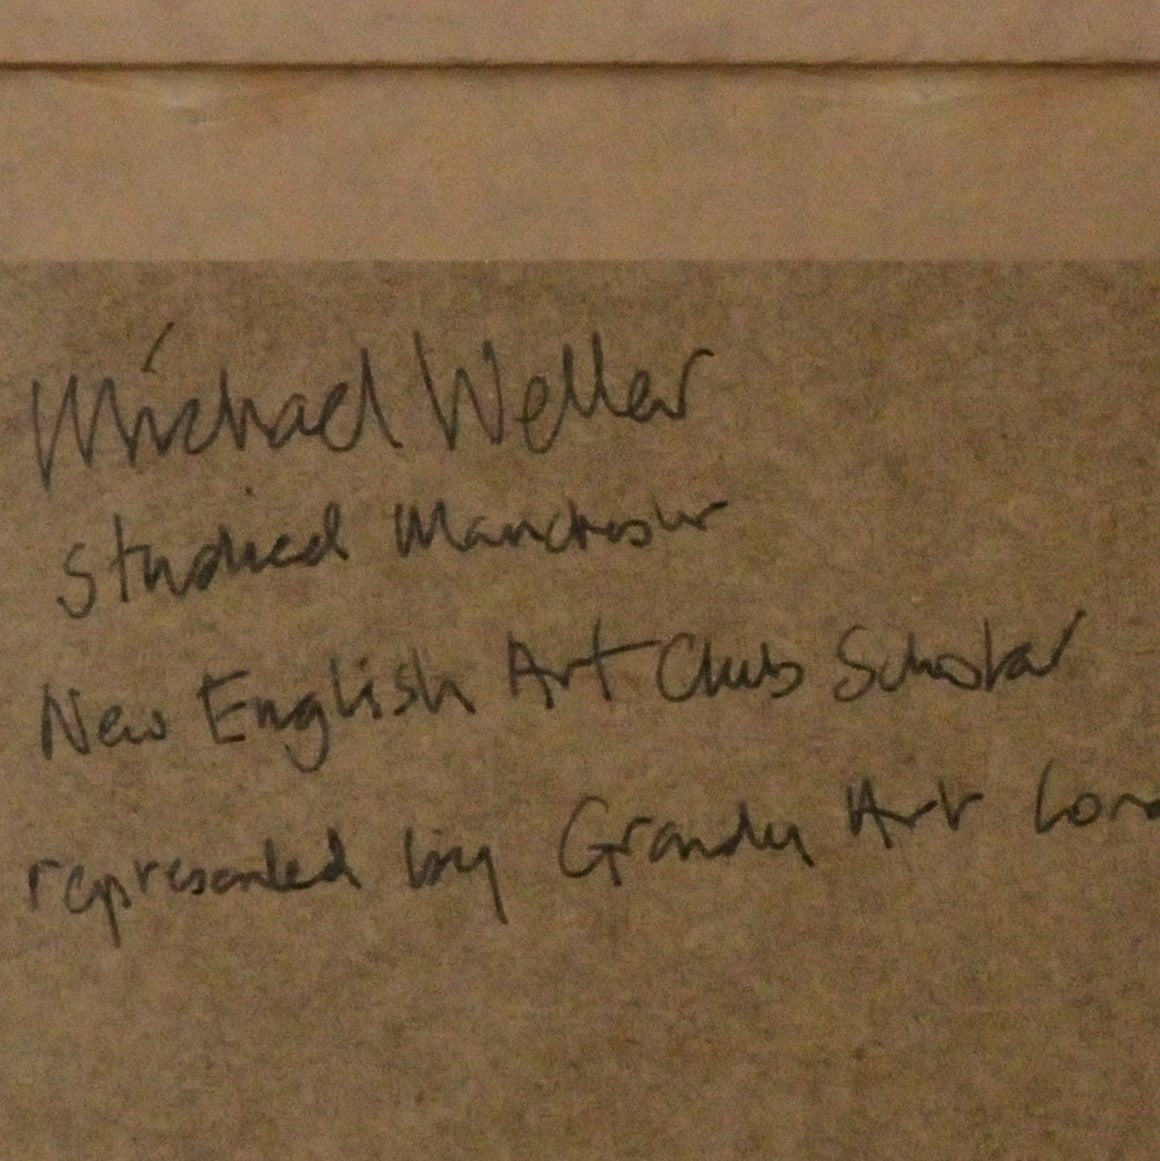 Michael Weller
Studied Manchester
New English Art Club Scholar
represented by Grandy Art Lon